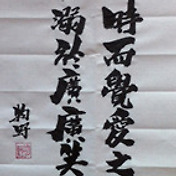 時而覺愛之
溺於廣廣笑